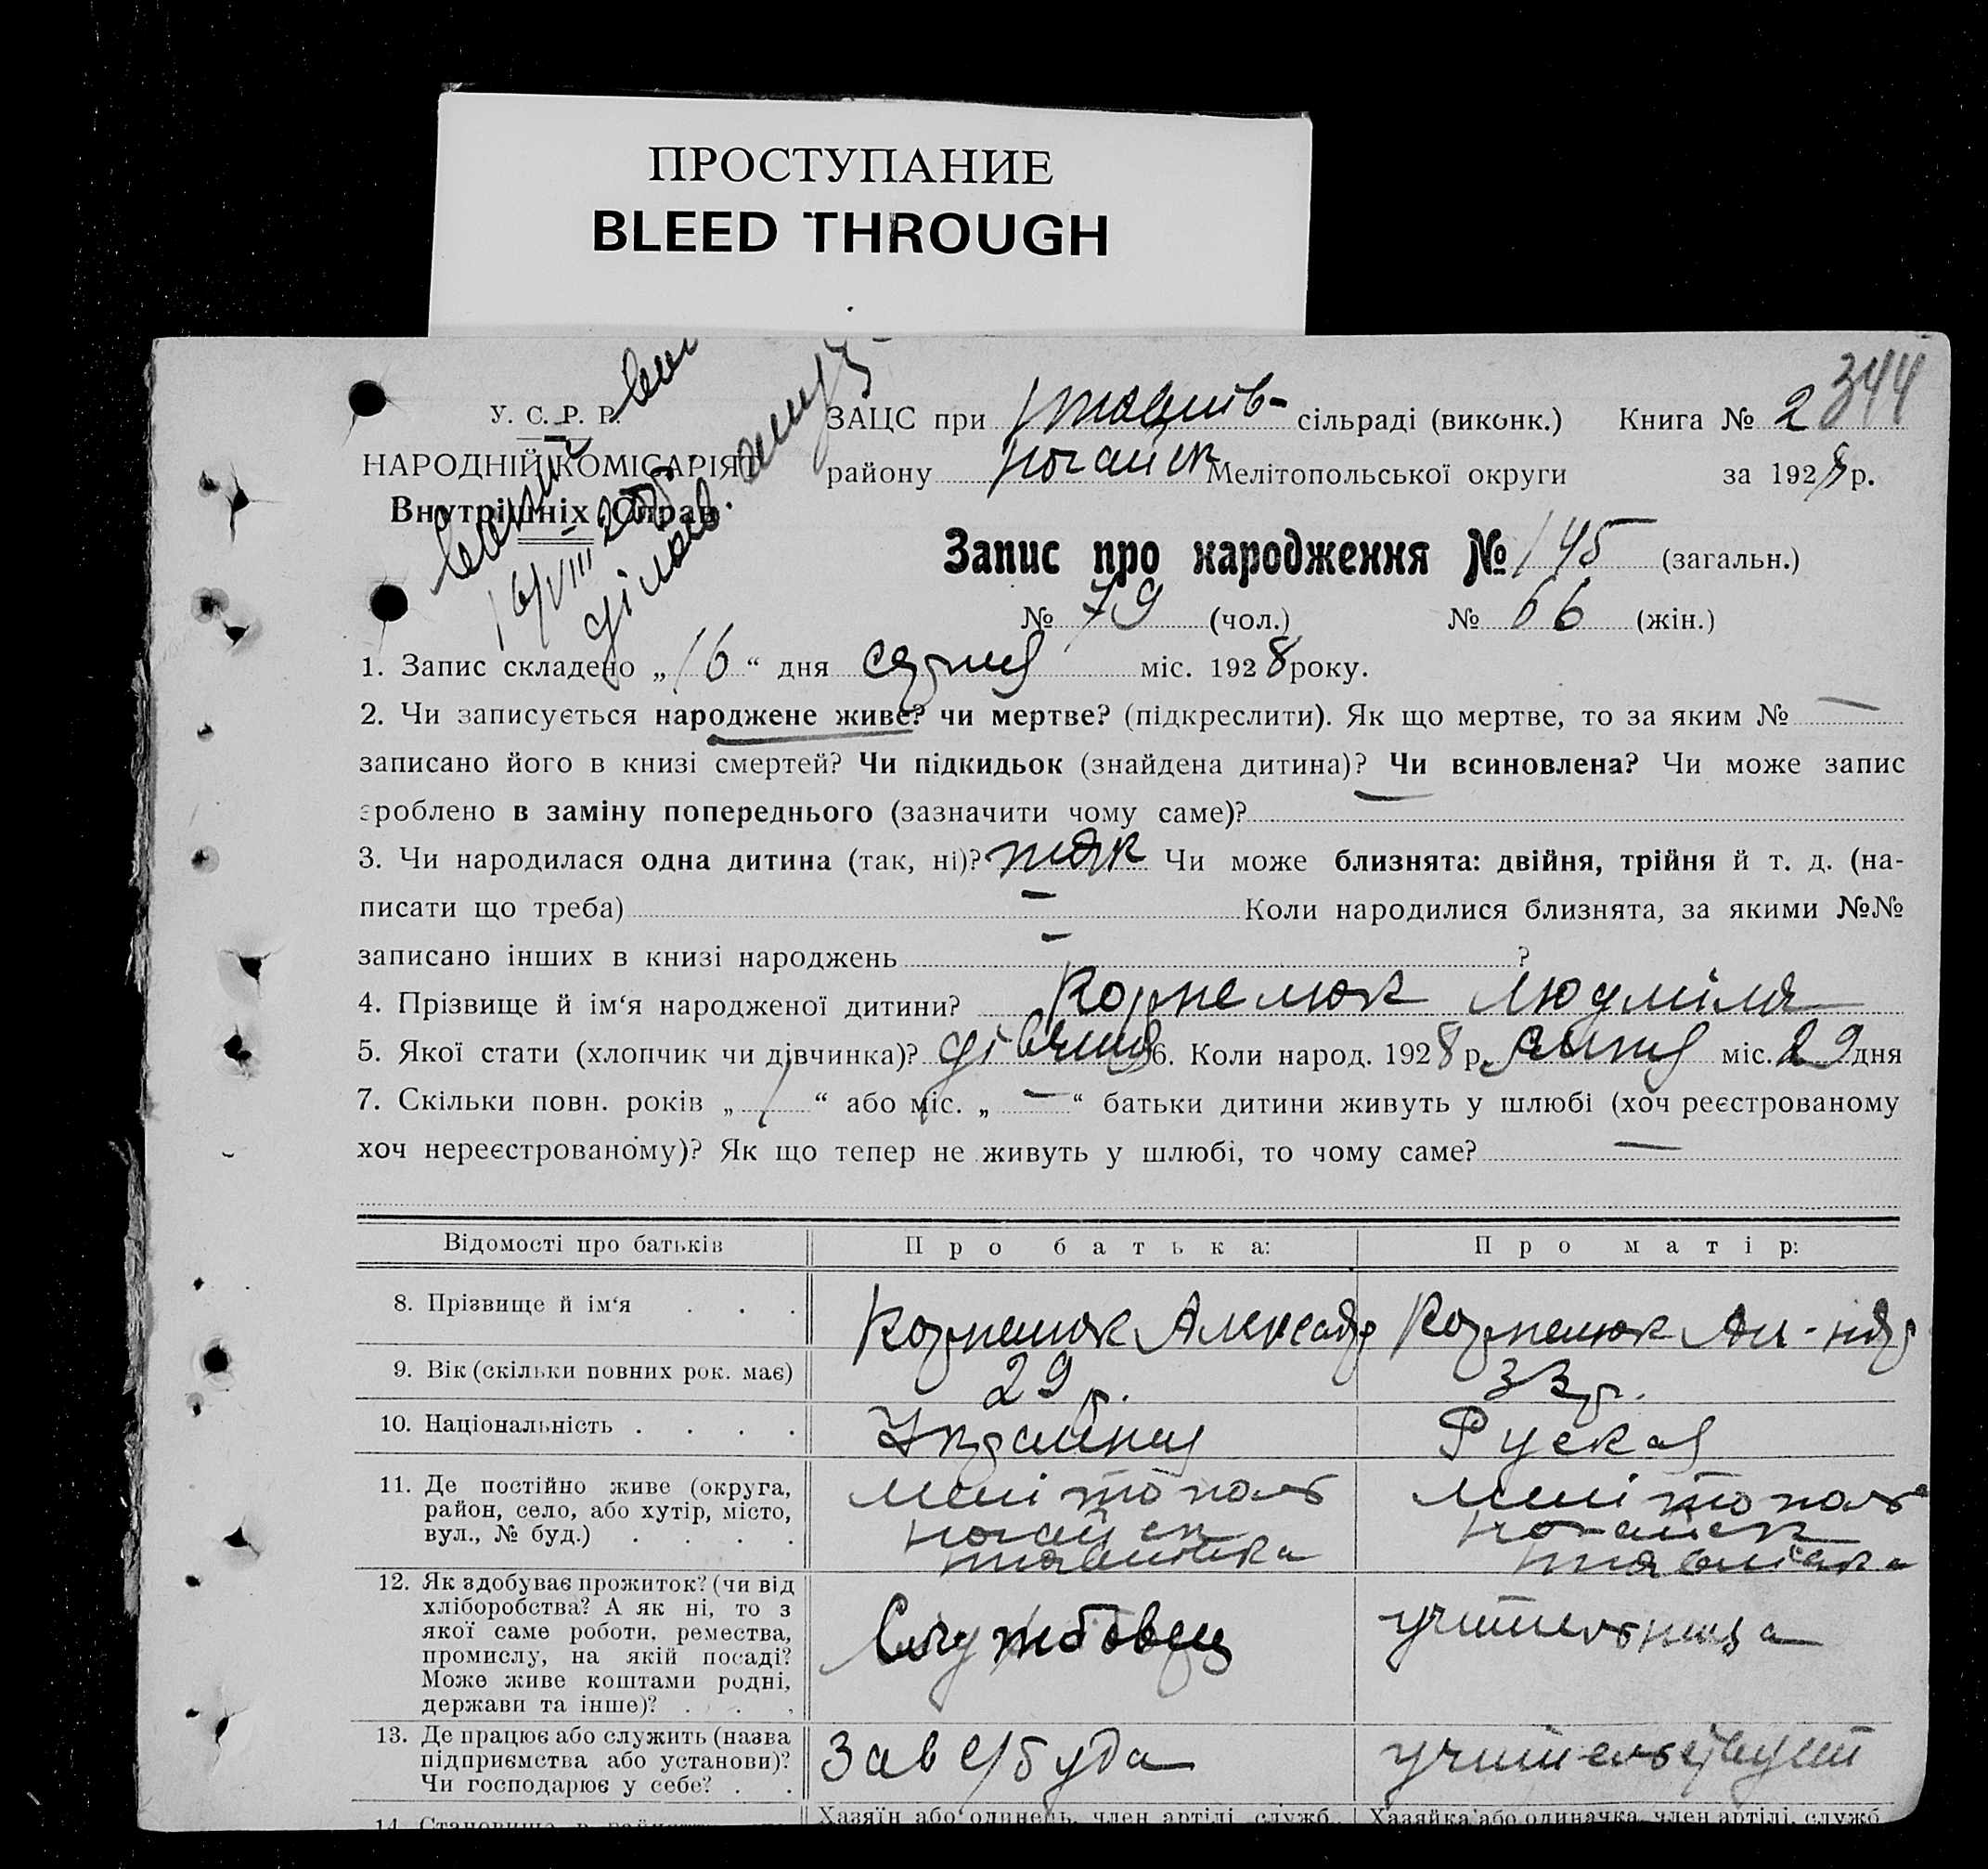 ПРОСТУПАНИЕ
BLEED THROUGH
344
У. С. Р. Р.
НАРОДНІЙ КОМІСАРІЯТ
Внутрішніх Справ
16/VIII 28
ЗАЦС при сільраді (виконк.) Книга № 2
району Ногайск Мелітопольської округи за 1928 р.
Запис про народження № 145 (загальн.)
№ 79 (чол.) № 66 (жін.)
1. Запис складено „16“ дня серпня міс. 1928 року.
2. Чи записується народжене живе? чи мертве? (підкреслити). Як що мертве, то за яким № —
записано його в книзі смертей? Чи підкидьок (знайдена дитина)? Чи всиновлена? Чи може запис
зроблено в заміну попереднього (зазначити чому саме)? —
3. Чи народилася одна дитина (так, ні)? так Чи може близнята: двійня, трійня й т. д. (на-
писати що треба) — Коли народилися близнята, за якими №№
записано інших в книзі народжень — ?
4. Прізвище й ім‘я народженої дитини? Корнелюк Людміла
5. Якої стати (хлопчик чи дівчинка)? дівчина 6. Коли народ. 1928 р. липня міс. 29 дня
7. Скільки повн. років „1“ або міс. „—“ батьки дитини живуть у шлюбі (хоч реєстрованому
хоч нереєстрованому)? Як що тепер не живуть у шлюбі, то чому саме? —
Відомості про батьків Про батька: Про матір:
8. Прізвище й ім‘я . . . Корнелюк Александр Корнелюк
9. Вік (скільки повних рок. має) 29 р. 33 р.
10. Національність . . . . Руская
11. Де постійно живе (округа,
район, село, або хутір, місто,
вул., № буд.) . . . .
Мелітополь Мелітополь
Ногайск Ногайск
12. Як здобуває прожиток? (чи від
хліборобства? А як ні, то з
якої саме роботи, ремества,
промислу, на якій посаді?
Може живе коштами родні,
держави та інше)? . . .
Службовец учительница
13. Де працює або служить (назва
підприємства або установи)?
Чи господарює у себе? . .
Зав с/буда
Хазяїн або одинець, член артілі, служб. Хазяйка або одиначка, член артілі, служб.